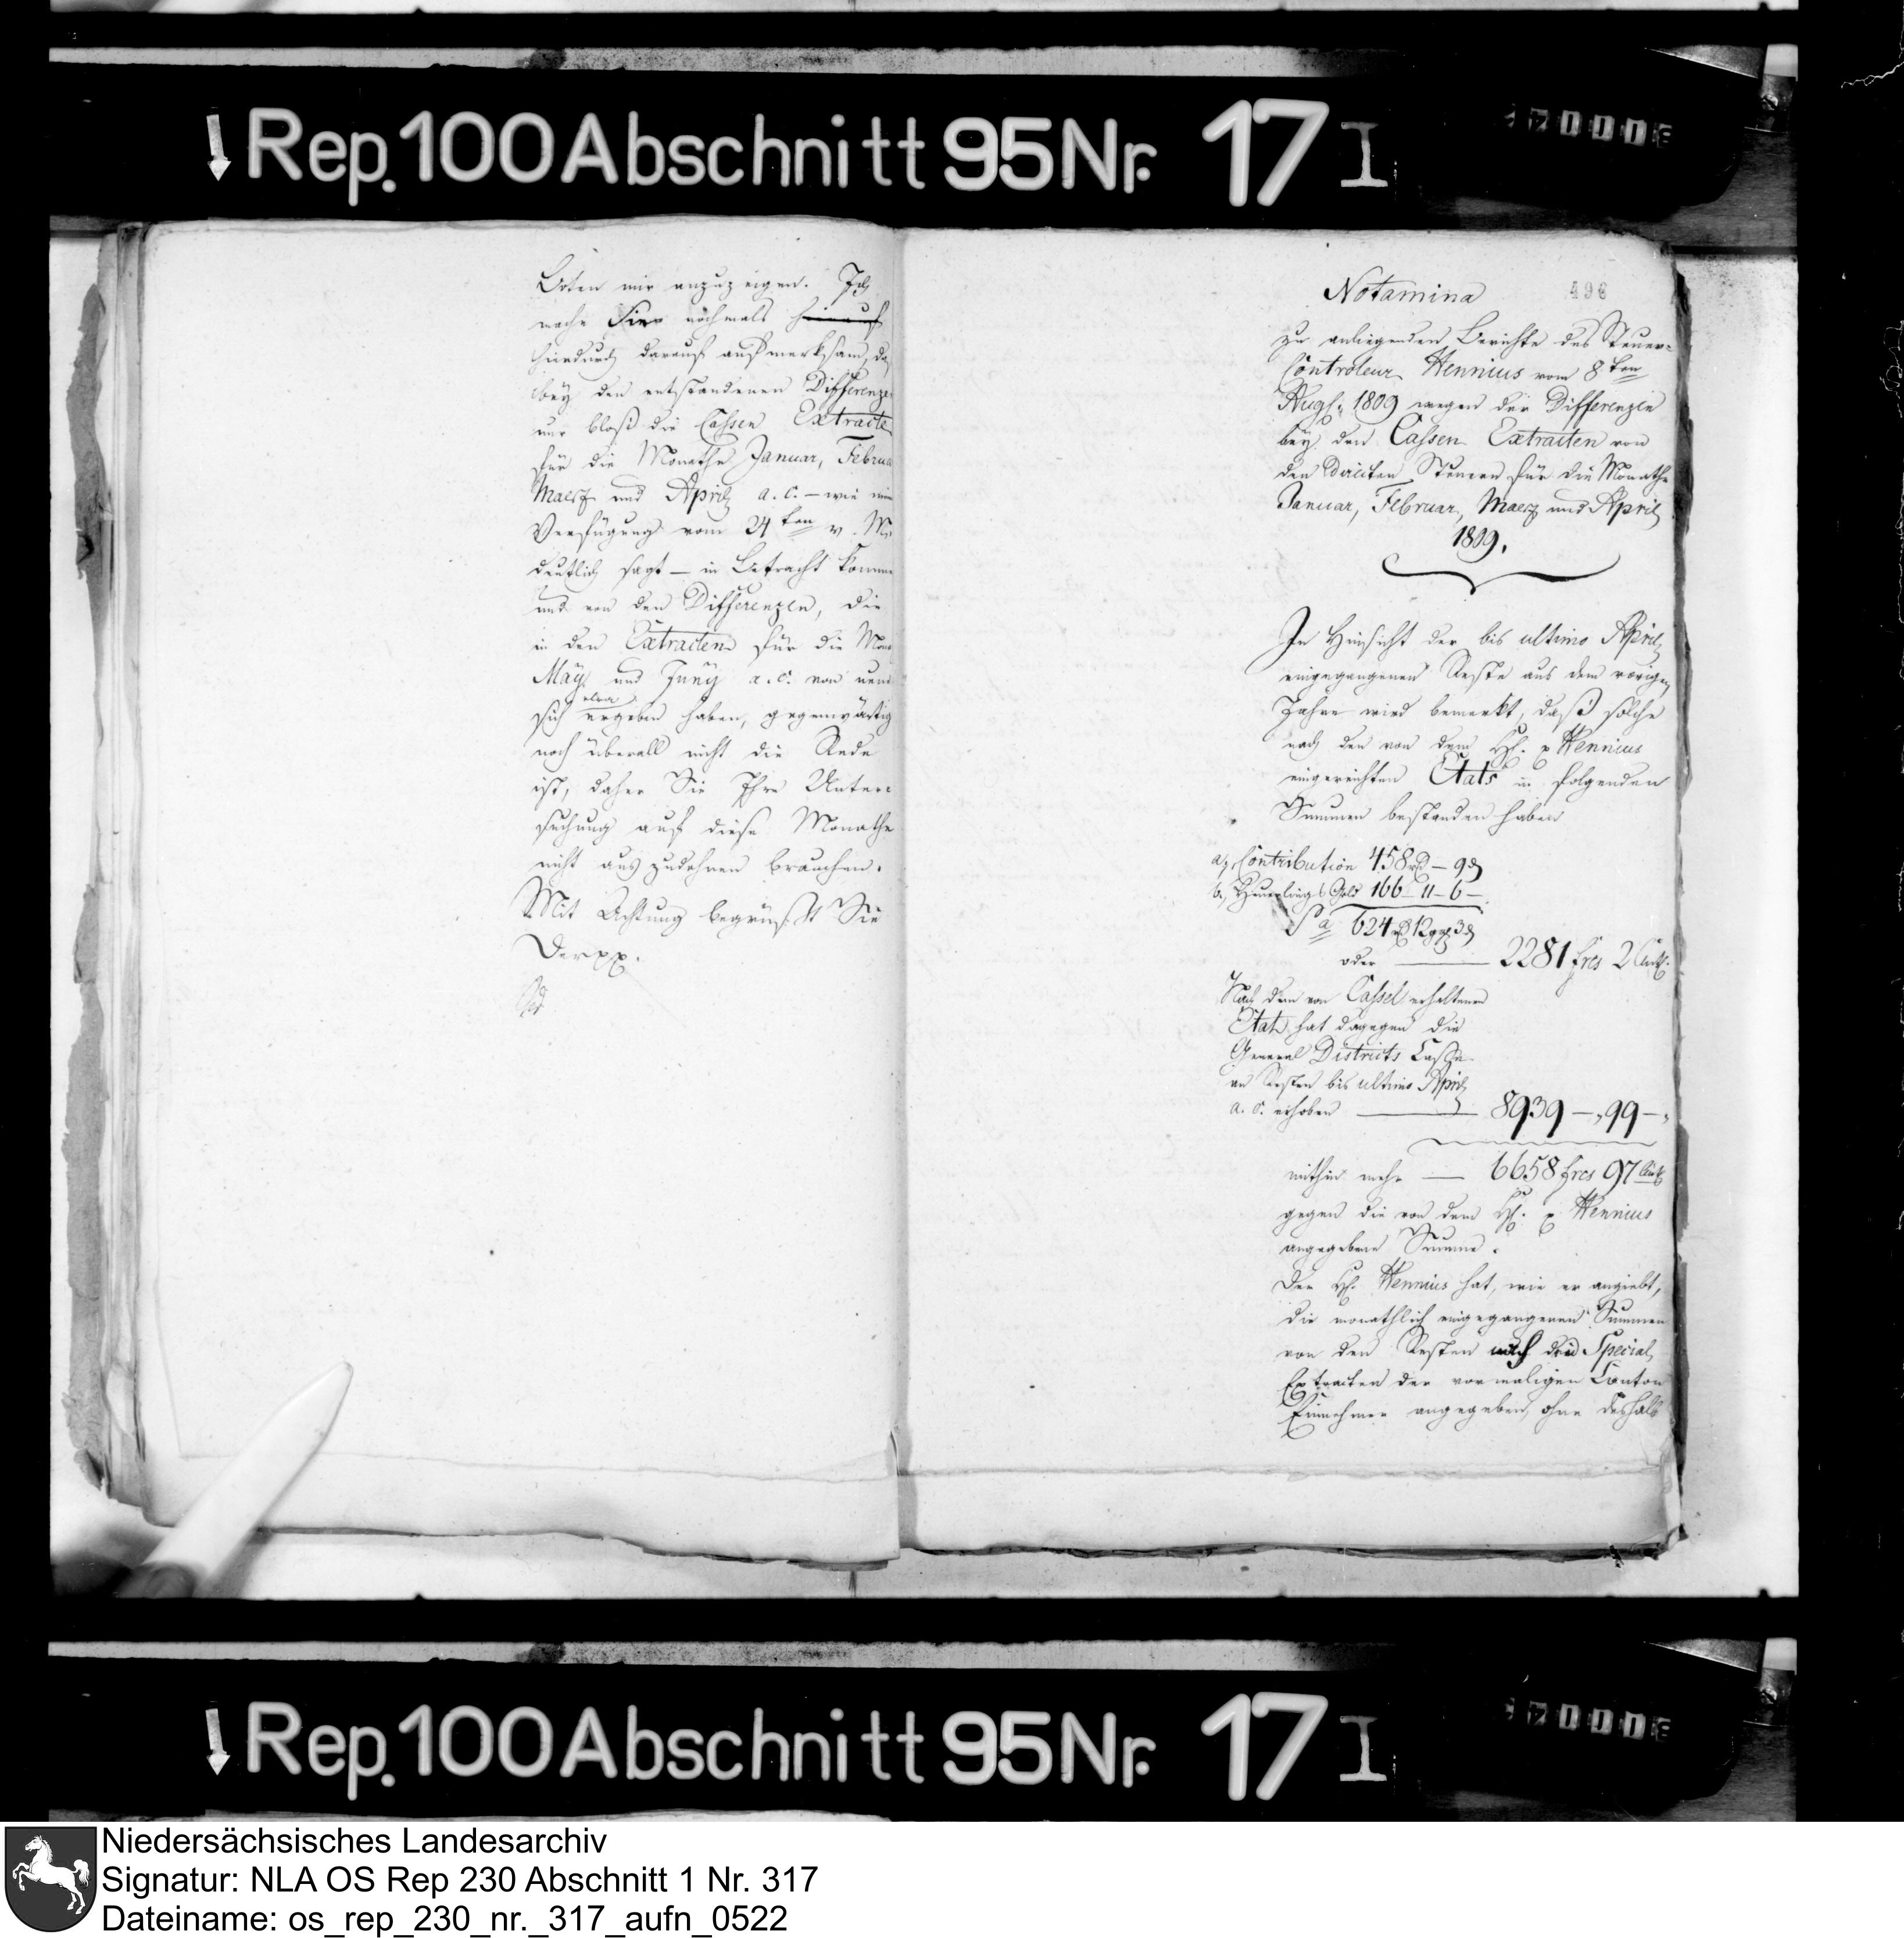 Rep. 100 Abschnitt 95 Nr. 17 I
Boten mir anzuzeigen. Ich
mache Sie nochmals hierauf
hierdurch darauf aufmerksam, da
bey den entstandenen Differenzen
nur bloß die Cassen Extracte
für die Monathe Januar, Februa
Maerz und April a. c. – wie meine
Verfügung vom 24ten v. Mts
deutlich sagt – in Betracht komme
und von den Differenzen, die
in den Extracten für die Mona
May und Juny a. c. von neue
etwa
sich ergeben haben, gegenwärtig
noch überall nicht die Rede
ist, daher Sie Ihre Unter-
suchung auf diese Monathe
nicht auszudehnen brauchen.
Mit Achtung begrüßt Sie
Der pp.
496
Notamina
zu anliegenden Berichte des Steuer-
Controleur Hennius vom 8ten
Augs. 1809 wegen der Differenzen
bey den Cassen Extracten von
den Directen Steuern für die Monathe
Januar, Februar, Maerz und April
1809.
In Hinsicht der bis ultimo April
eingegangenen Reste aus dem vorigen
Jahre wird bemerkt, daß solche
nach den von dem H. p Hennius
eingereichten Etats in folgenden
Summen bestanden haben
a, Contribution 458 rt – 9 d
b, Heuerlings Geld 166 – 11 – 6 –
Sa 624 rt 12 ggl 3 d
oder — 2281 frcs 2 Cent.
Nach dem von Cassel erhaltenen
Etat hat dagegen die
General Districts Casse
an Resten bis ultimo April
a. c. erhoben — 8939 – „ 99 – „
mithin mehr — 6658 frcs 97 Cent
gegen die von dem H. p Hennius
angegebene Summe.
Der H. Hennius hat, wie er angiebt,
die monathlich eingegangenen Summen
von den Resten nach den Special
Extracten der vormaligen Canton
Einnehmer angegeben, ohne deshalb
Rep. 100 Abschnitt 95 Nr. 17 I
Niedersächsisches Landesarchiv
Signatur: NLA OS Rep 230 Abschnitt 1 Nr. 317
Dateiname: os_rep_230_nr._317_aufn_0522